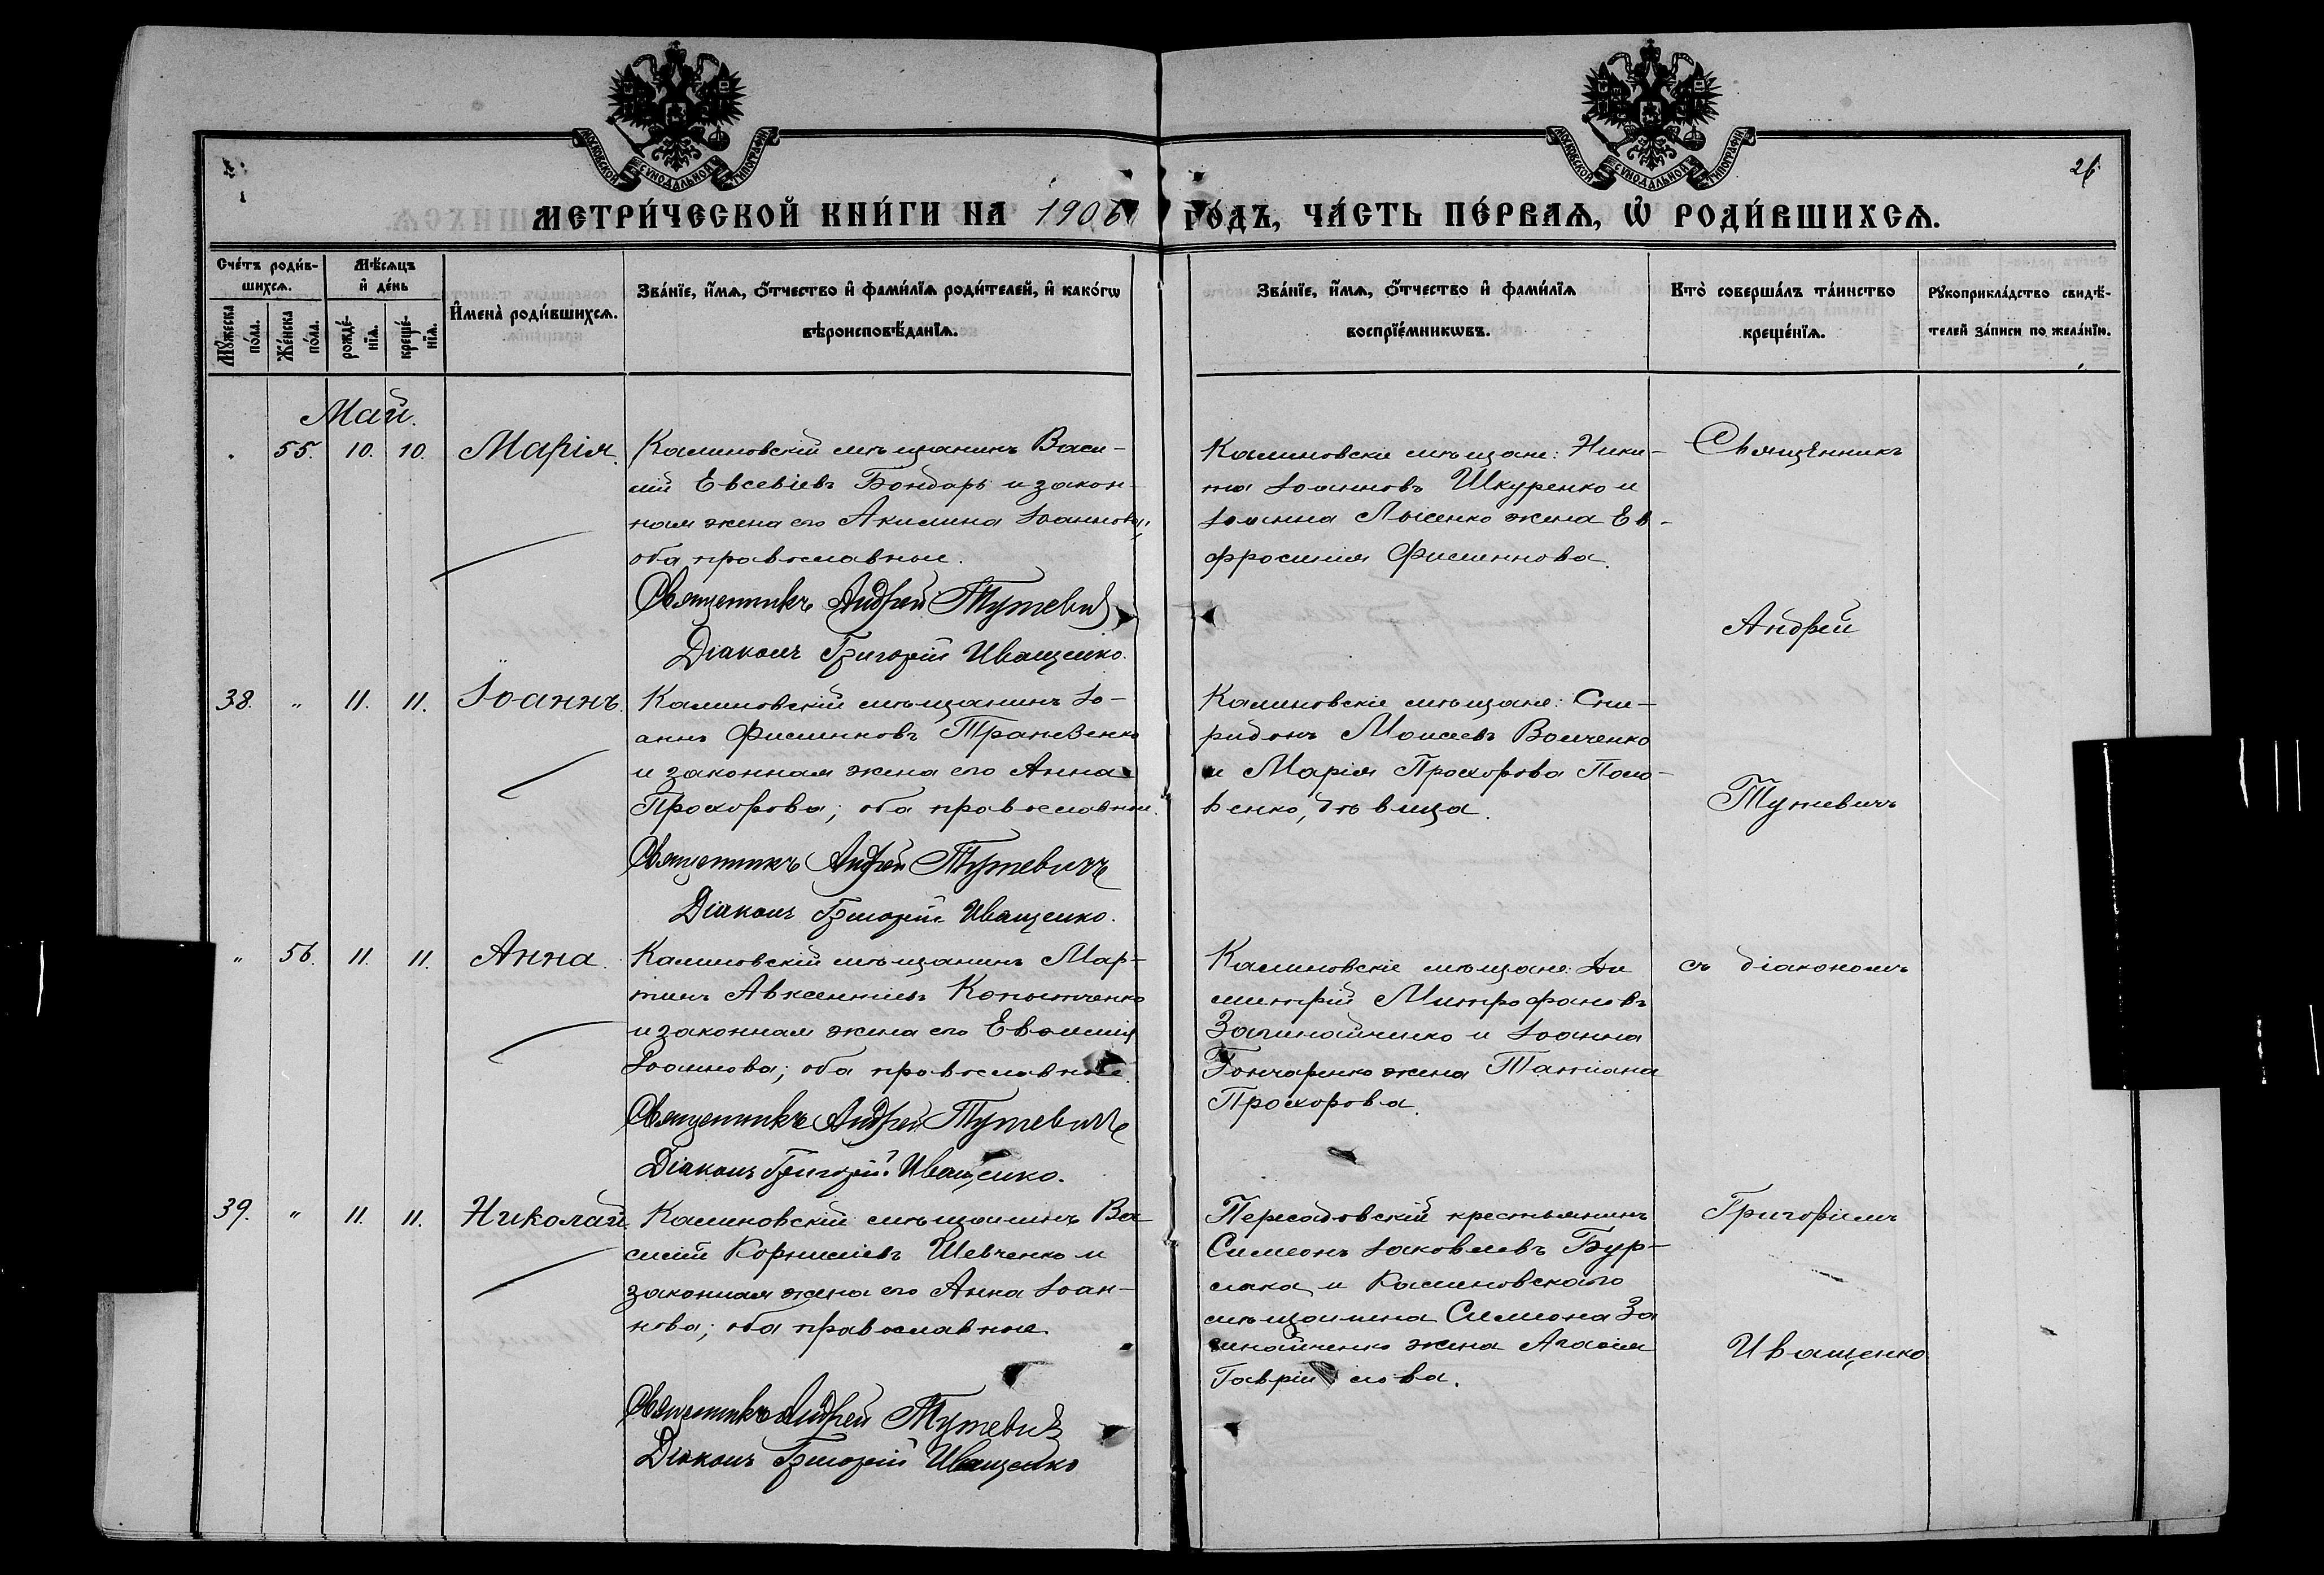 МОСКОВСКОЙ СУНОДАЛЬНОЙ ТИПОГРАФІИ
МОСКОВСКОЙ СУНОДАЛЬНОЙ ТИПОГРАФІИ
26
МЕТРИ́ЧЕСКОЙ КНИ́ГИ НА 1906 ГО́ДЪ, ЧА́СТЬ ПЕ́РВАѦ, Ѡ҆ РОДИ́ВШИХСѦ.
Сче́тъ роди́в-
шихсѧ.
Мꙋ́жеска
по́ла.
Же́нска
по́ла.
Мѣ́сѧцъ
и҆ де́нь
рожде́-
нїѧ.
креще́-
нїѧ.
И҆мена̀ роди́вшихсѧ.
Зва́нїе, и҆́мѧ, ѻ҆́тчество и҆ фами́лїѧ роди́телей, и҆ како́гѡ
вѣроисповѣ́данїѧ.
Зва́нїе, и҆́мѧ, ѻ҆́тчество и҆ фами́лїѧ
воспрїе́мникѡвъ.
Кто̀ соверша́лъ та́инство
креще́нїѧ.
Рꙋкоприкла́дство свидѣ́-
телей за́писи по жела́нїю.
Май.
55. 10. 10. Марія.
Калиновскій мѣщанинъ Васи-
лій Евсевіевъ Бондарь и закон-
ная жена его Акилина Іоаннова;
оба православные.
Священникъ Андрей Тутевичъ
Діаконъ Григорій Иващенко.
Калиновскіе мѣщане: Ники-
та Іоанновъ Шкуренко и
Іоанна Лысенко жена Ев-
фросинія Филиппова.
Священникъ
Андрей
38. " 11. 11. Іоаннъ.
Калиновскій мѣщанинъ Іо-
аннъ Филипповъ
и законная жена его Анна
Прохорова; оба православные.
Священникъ Андрей Тутевичъ
Діаконъ Григорій Иващенко.
Калиновскіе мѣщане: Спи-
ридонъ Моисеевъ Волченко
и Марія Прохорова Поло-
венко, дѣвица.
Тутевичъ
" 56. 11. 11. Анна.
Калиновскій мѣщанинъ Мар-
тинъ Авксентіевъ Копытченко
и законная жена его Евфимія
Іоаннова; оба православные.
Священникъ Андрей Тутевичъ
Діаконъ Григорій Иващенко.
Калиновскіе мѣщане: Ди
митрій Митрофановъ
и Іоанна
Гончаренко жена Татіана
Прохорова.
съ діакономъ
39. " 11. 11. Николай
Калиновскій мѣщанинъ Ва
силій Корниліевъ Шевченко и
законная жена его Анна Іоан-
нова; оба православные.
Священникъ Андрей Тутевичъ
Діаконъ Григорій Иващенко
Пересадовскій крестьянинъ
Симеонъ Іаковлевъ Бур-
лака и Калиновскаго
мѣщанина Симеона
жена Агафія
Гавріилова.
Григоріемъ
Иващенко